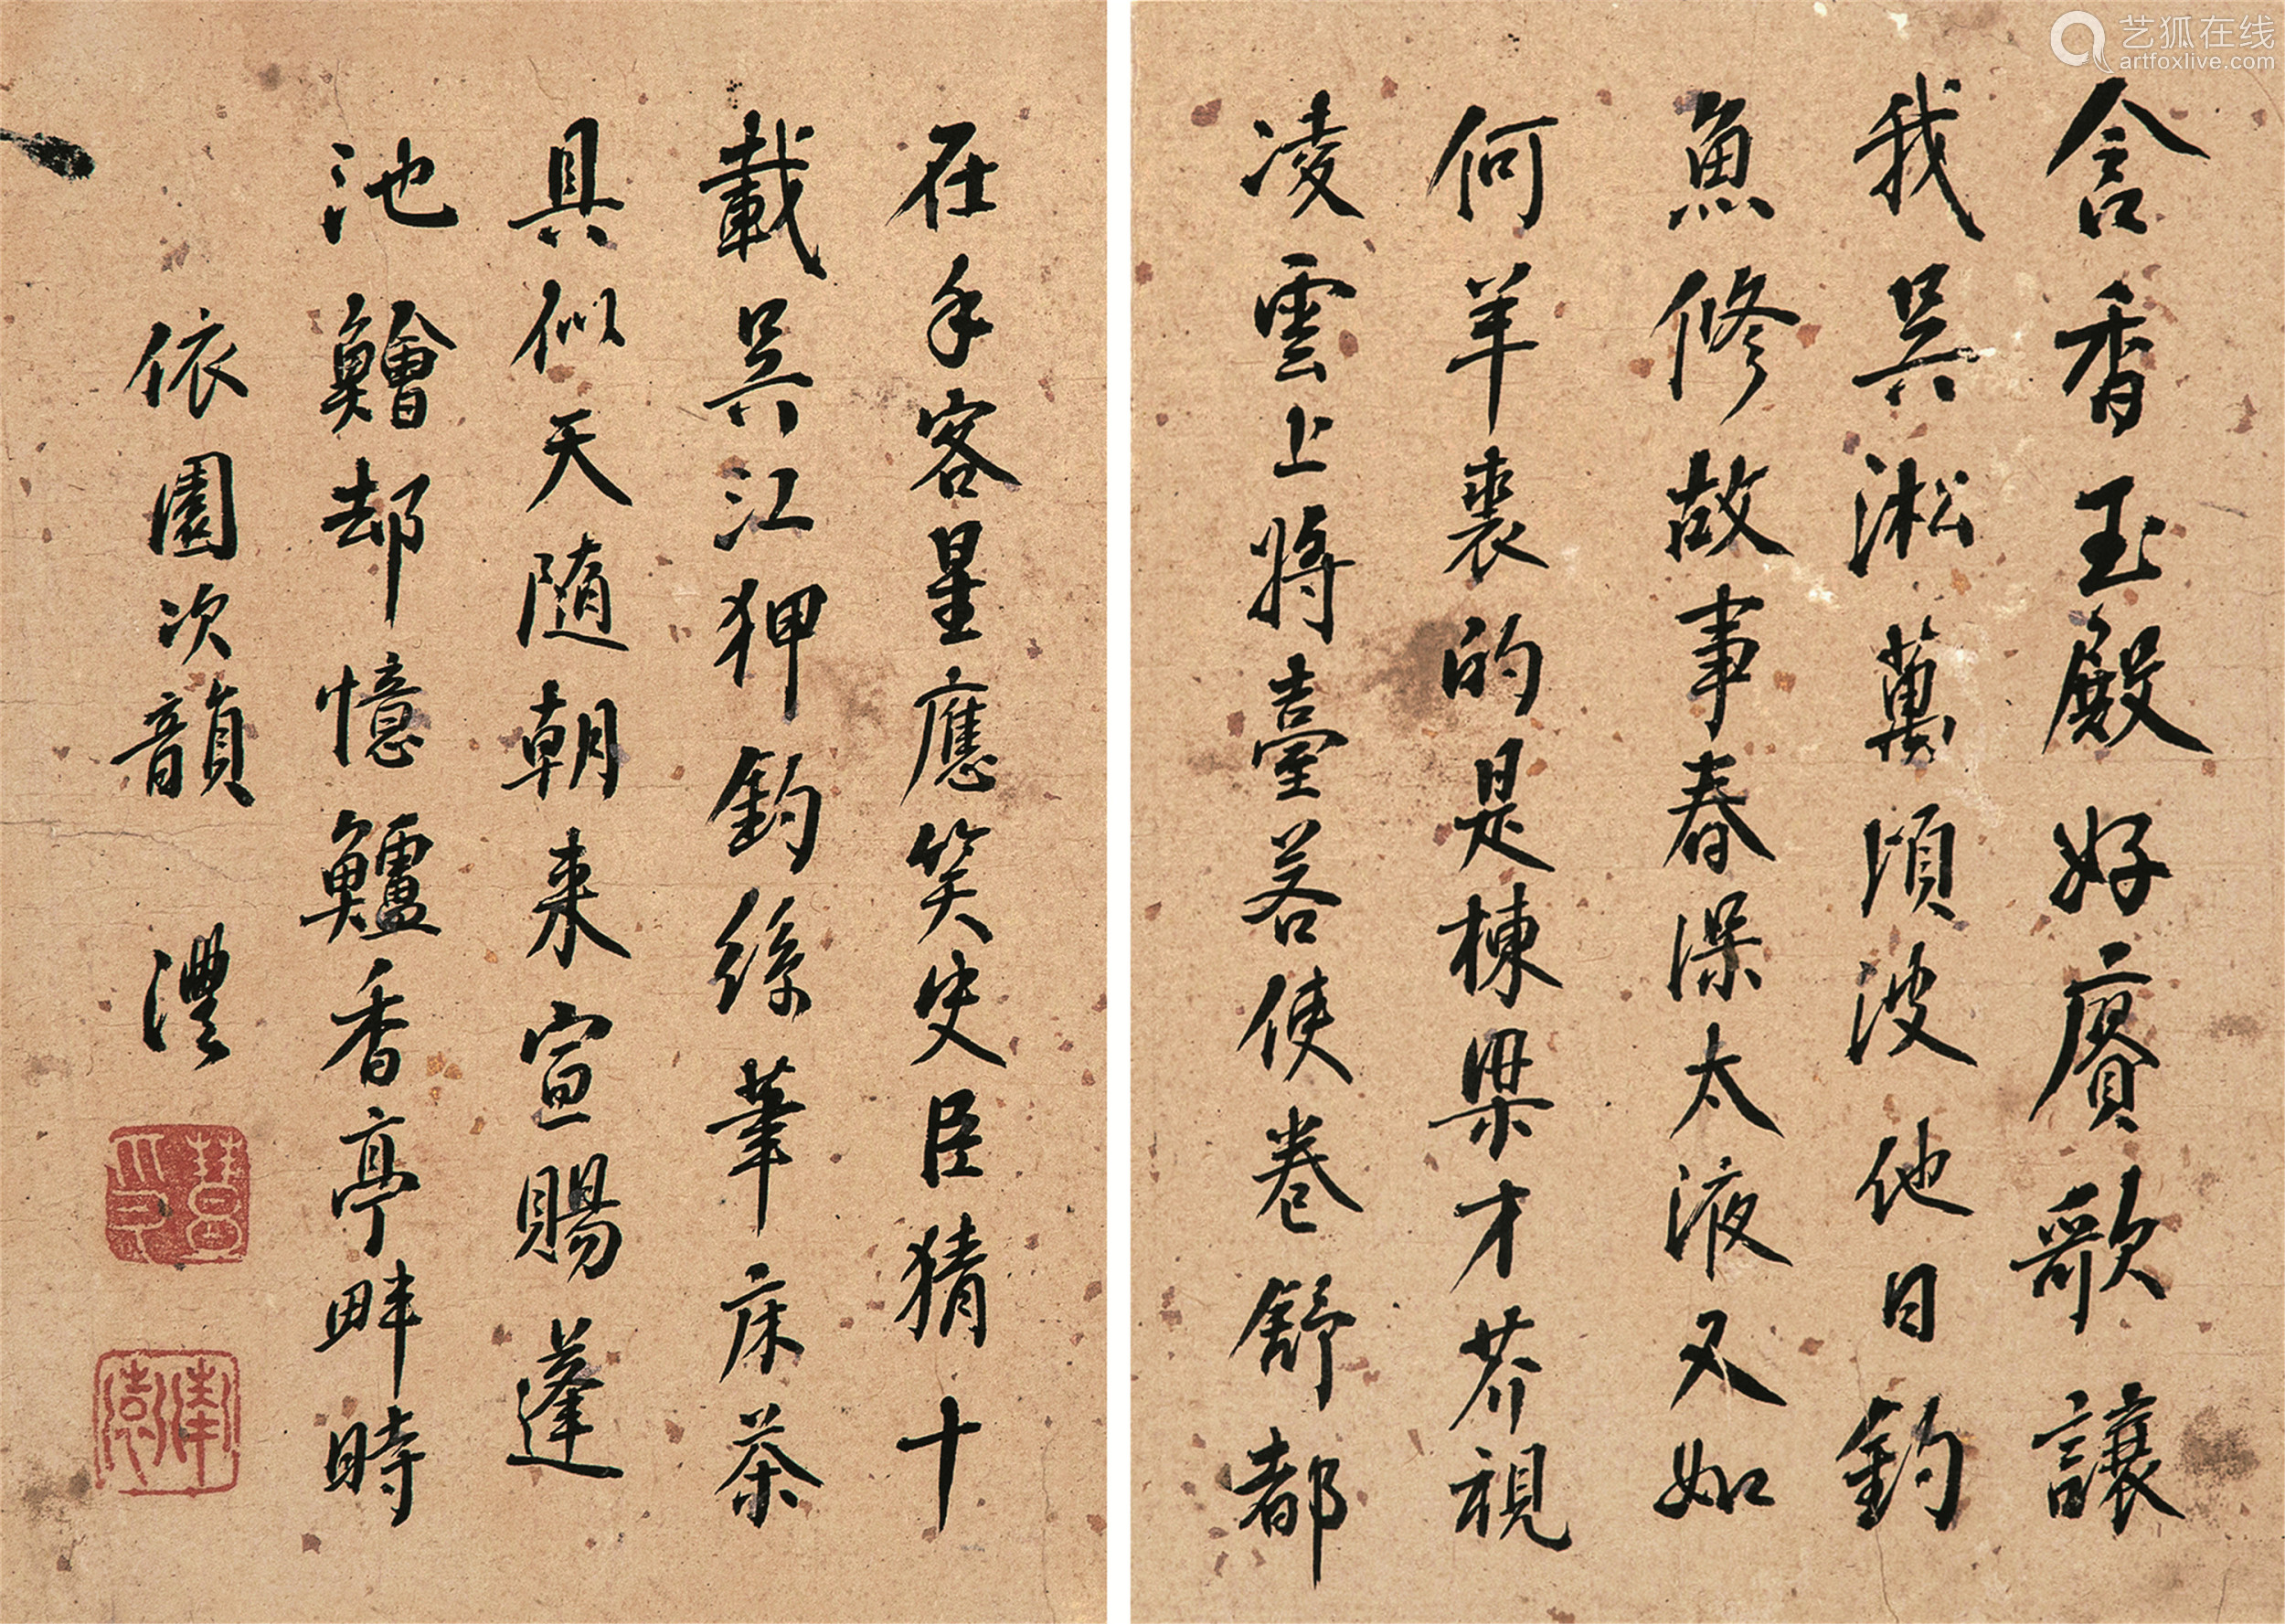 含香玉殿好賡歌讓
我吳淞萬頃波他日釣
魚修故事春深太液又如
何羊裘的是棟梁才芥視
凌雲上將臺若使卷舒都
在手客星應笑史臣猜十
載吳江狎釣絲筆床茶
具似天隨朝來宣賜蓬
池鱠却憶鱸香亭畔時
依園次韻 澧
艺狐在线
artfoxlive.com